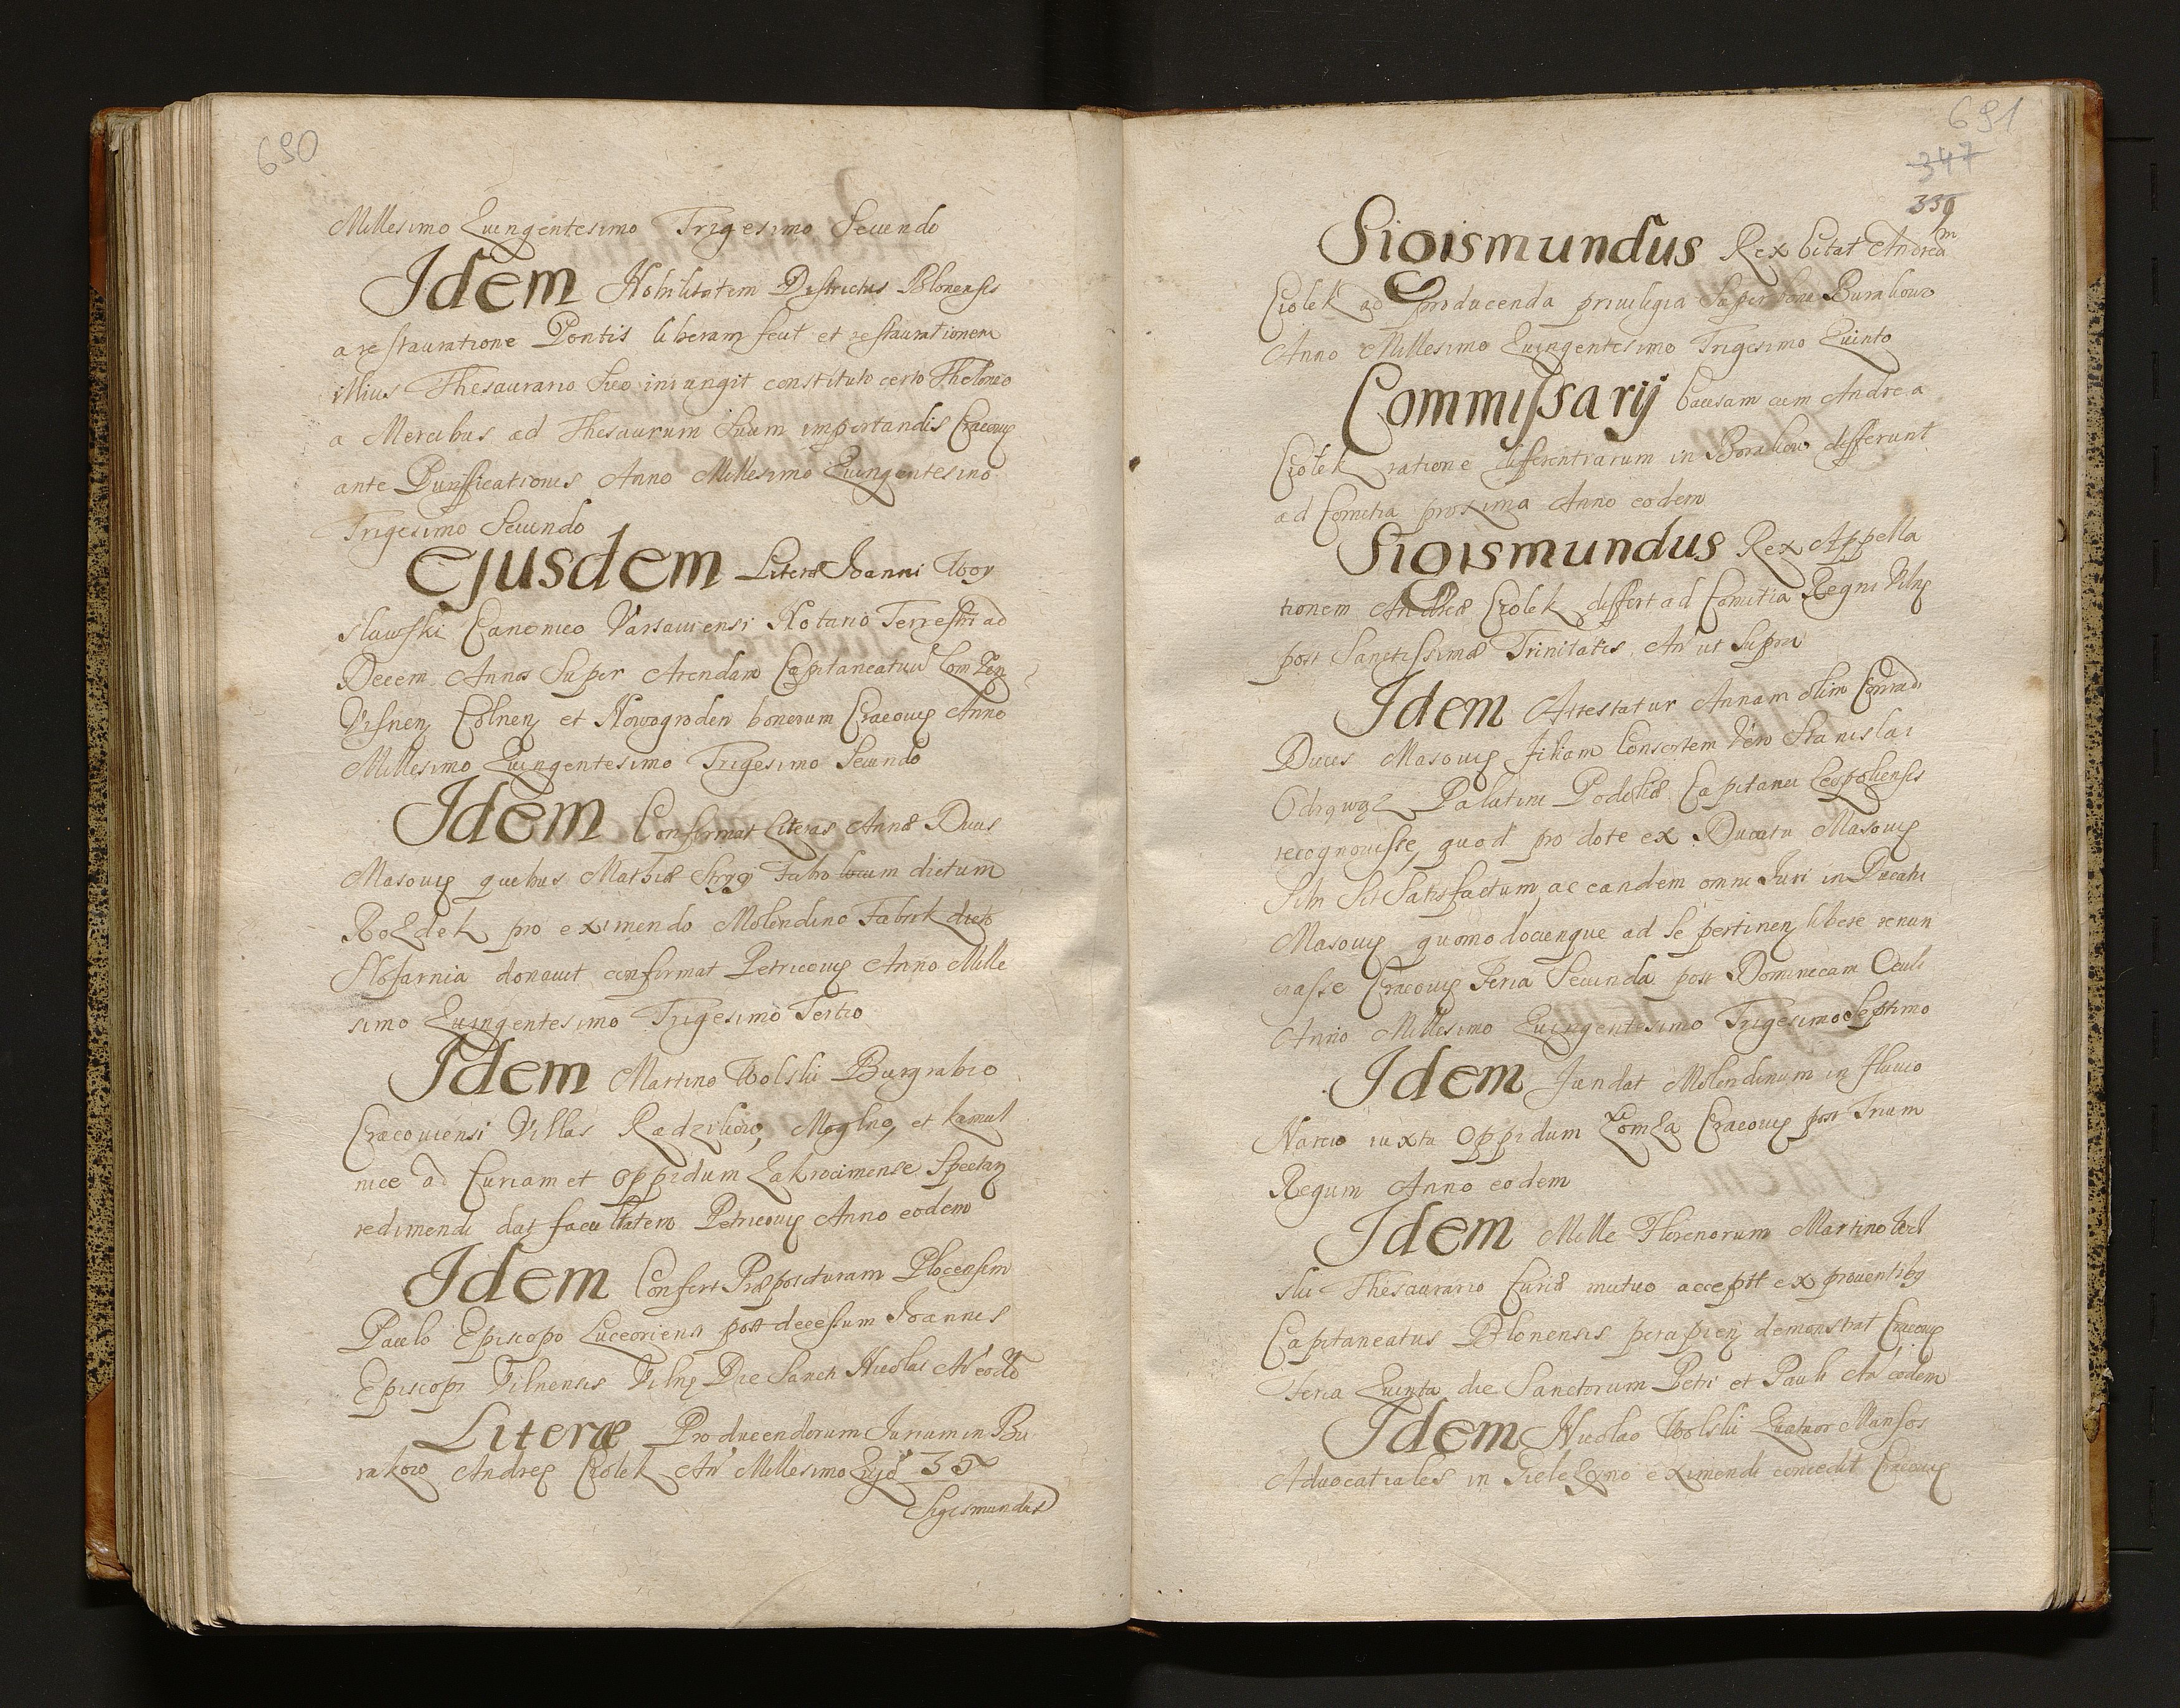 690
Millesimo Quingentesimo Trigesimo Secundo
Idem Nobilitatem Districtus Blonensis
a restauratione Pontis liberam fecit et restaurationem
illius Thesaurario Suo iniungit constituto certo Theloneo
a Mercibus ad Thesaurum Suum importandis Cracoviæ
ante Purifficationis Anno Millesimo Quingentesimo
Trigesimo Secundo
Ejusdem Literæ Joanni Woy
slawski Canonico Varsaviensi Notario Terrestri ad
Decem Annos Super Arendam Capitaneatuū Lomzen
Visnen Colnen et Nowogroden bonorum Cracoviæ Anno
Millesimo Quingentesimo Trigesimo Secundo
Idem Confirmat Literas Annæ Ducis
Masoviæ quibus Mathiæ fabro locum dictum
pro eximendo Molendino Fabrik dicto
donavit confirmat Petricoviæ Anno Mille
simo Quingentesimo Trigesimo Tertio
Idem Martino Wolski Burgrabio
Cracoviensi Villas Radzikow, Moglno, et
nice ad Curiam et Oppidum Zakrocimense Spectan
redimendi dat facultatem Petricoviæ Anno eodem
Idem Confert Præposituram Plocensem
Paulo Episcopo Luceoriensi post decessum Joannis
Episcopi Vilnensis Vilnæ Die Sancti Nicolai Aº eodē
Literæ Producendorum Jurium in Bu
rakow Andreæ Ciolek Aº Millesimo Qujº 35º
Sigismundus
691
347
339
Sigismundus Rex Citat Andream
Ciolek ad producenda privilegia Super bona Burakow
Anno Millesimo Quingentesimo Trigesimo Quinto
Commissarij Causam cum Andrea
Ciolek ratione differentiarum in Borakow differunt
ad Comitia proxima Anno eodem
Sigismundus Rex Appella
tionem Andreæ Ciolek differt ad Comitia Regni Vilnæ
post Sanctissimæ Trinitatis Aº ut Supra
Idem Attestatur Annam olim Conradi
Ducis Masoviæ filiam Consortem Vero Stanislai
Odrowąz Palatini Podoliæ Capitanei Leopoliensis
recognovisse, quod pro dote ex Ducatu Masoviæ
Sibi Sit Satisfactum, ac eandem omni Juri in Ducatu
Masoviæ quomodocunque ad se pertinen libere renun
ciasse Cracoviæ Feria Secunda post Dominicam Oculi
Anno Millesimo Quingentesimo Trigesimo Septimo
Idem fundat Molendinum in fluvio
Narew iuxta Oppidum Łomza Cracoviæ post Trium
Regum Anno eodem
Idem Mille Florenorum Martino Wol
ski Thesaurario Curiæ mutuo accepit ex proventibꝫ
Capitaneatus Blonensis percipien demonstrat Cracoviæ
feria Quinta die Sanctorum Petri et Pauli Aº eodem
Idem Nicolao Wolski Quatuor Mansos
Advocatiales in eximendi concedit Cracoviæ